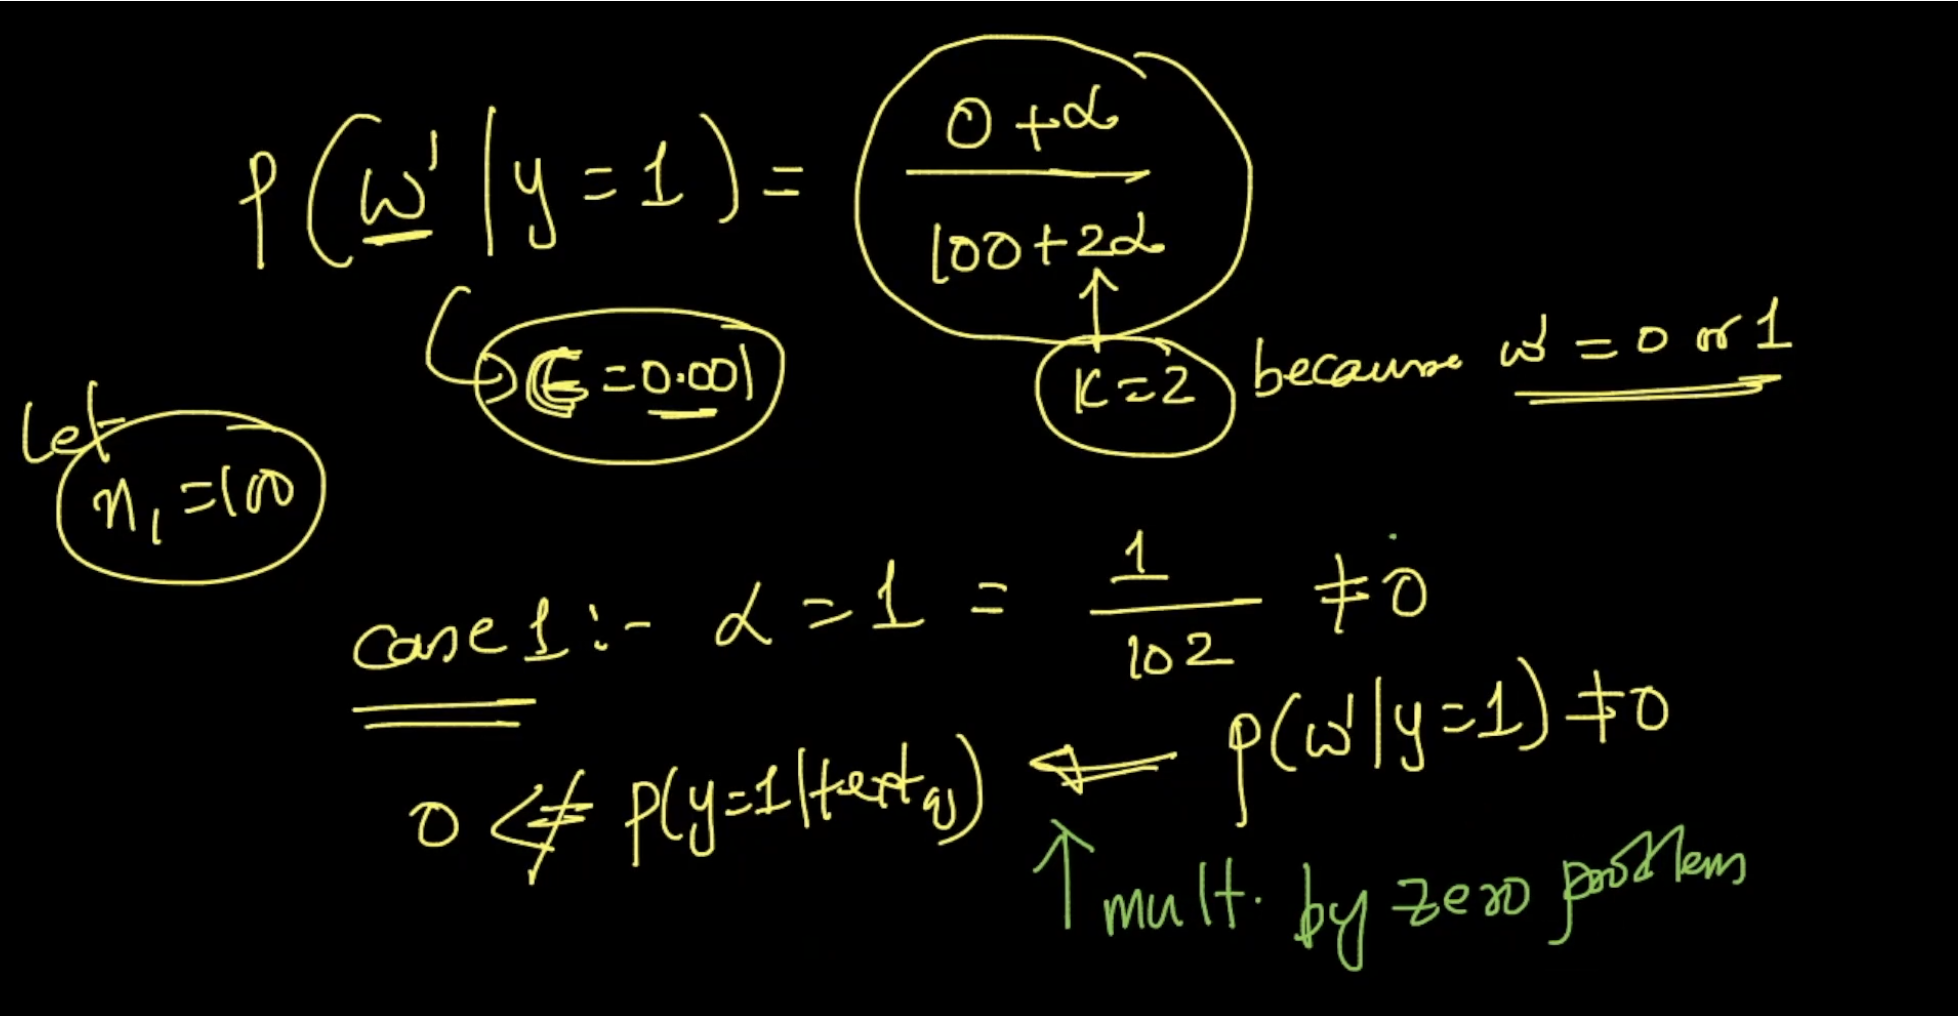 P(w'|y=1) = (0+α)/(100+2α)
ϵ=0.001
K=2 because w' = 0 or 1
Let
n₁=100
case 1:- α = 1 = 1/102 ≠ 0
P(w'|y=1) ≠ 0
0 ≠ P(y=1|text_q) ⟵
↑ mult. by zero problem